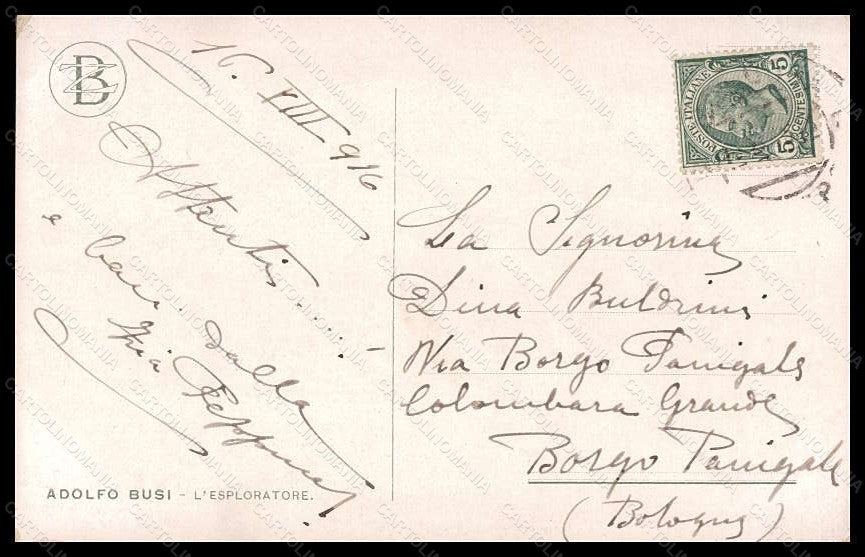 BZ
16. VIII 916
Attenti.....!
e baci dalla
zia Peppina!
ADOLFO BUSI – L'ESPLORATORE.
POSTE·ITALIANE
5 CENTESIMI 5
La Signorina
Dina Buldrini
Via Borgo Panigale
Colombara Grande
Borgo Panigale
(Bologna)
CARTOLINOMANIA